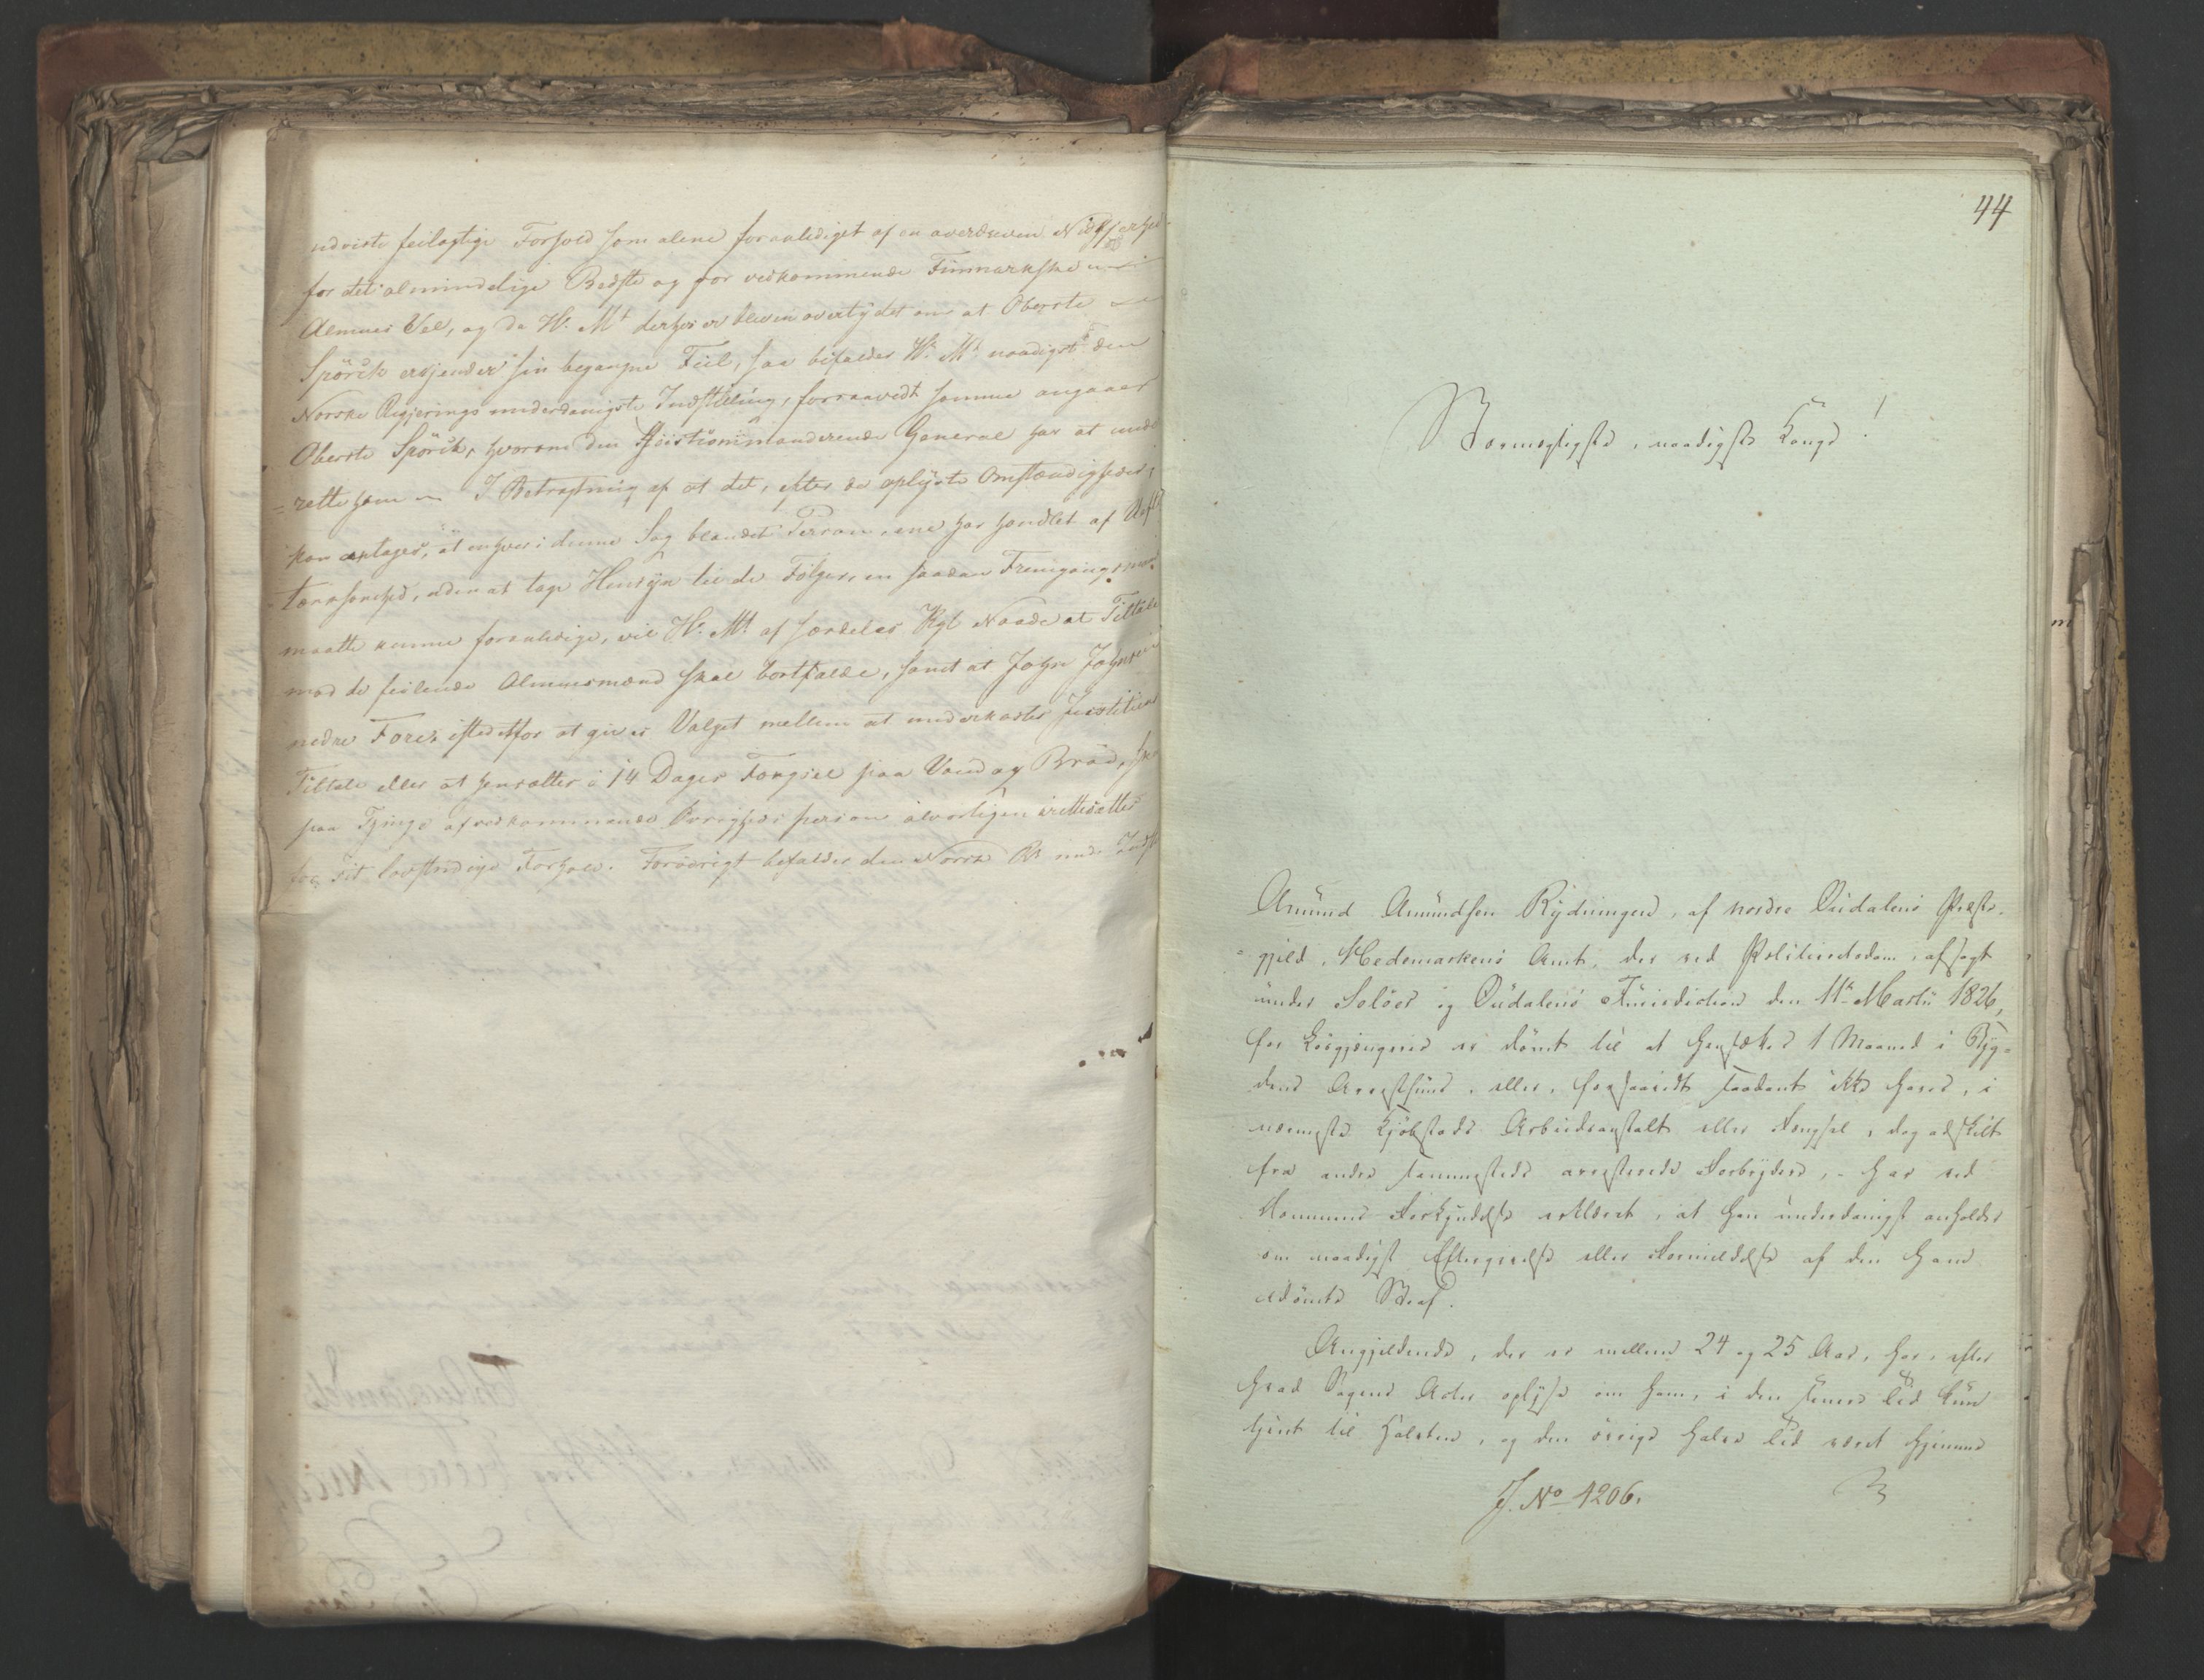 udviste feilagtige Forhold som alene foranlediget af en overdreven Nidkjærhed
for det almindelige Bedste og for vedkommende Finmarkske
Almues Vel, og da H. Mt derhos er bleven overtydet om at Oberste
Spörck erkjender sin begangne Feil, saa bifalder H. Mt naadigst den
Norske Regjerings underdanigste Indstilling, forsaavidt samme angaaer
Oberste Spörck, hvorom den Höistkommanderende General har at under
=rette ham — I Betragtning af at det, efter de oplyste Omstændigheder,
kan antages, at enhver i denne Sag blandet Person, ene har handlet af
Tænksomhed, uden at tage Hensyn til de Fölger, en saadan Fremgangsmaade
maatte kunne foranledige, vil H. Mt af særdeles Kgl Naade at Tiltale
mod de feilende Almuesmænd skal bortfalde, samt at John Johnsen
nedre Fore, istedetfor at gives Valget mellem at underkastes Justitiens
Tiltale eller at hensættes i 14 Dages Fængsel paa Vand og Bröd, skal
paa Thinge af vedkommende Övrighedsperson alvorligen irettesættes
for sit lovstridige Forhold. Forövrigt bifaldes den Norske Rs und. Indst
44
Stormægtigste, naadigste Konge!
Amund Amundsen Rydningen, af nordre Oudalens Præste-
=gjeld, Hedemarkens Amt, der ved Politieretsdom, afsagt
under Solöer og Oudalens Jurisdiction den 11te Martii 1826,
for Lösgjængerie er dömt til at hensættes 1 Maaned i Byg-
dens Arresthuus, eller, forsaavidt saadant ikke haves, i
nærmeste Kjöbstads Arbeidsanstalt eller Fængsel, dog adskilt
fra andre sammesteds arresterede Forbrydere, - har ved
Dommens Forkyndelse erklæret, at han underdanigst anholder
om naadigst Eftergivelse eller Formildelse af den ham
idömte Straf.
Angjeldende, der er mellem 24 og 25 Aar, har, efter
hvad Sagens Acter oplyse om ham, i den senere Tid kun
tjent til Halvten, og den övrige halve Tid været hjemme
J. No 1206.